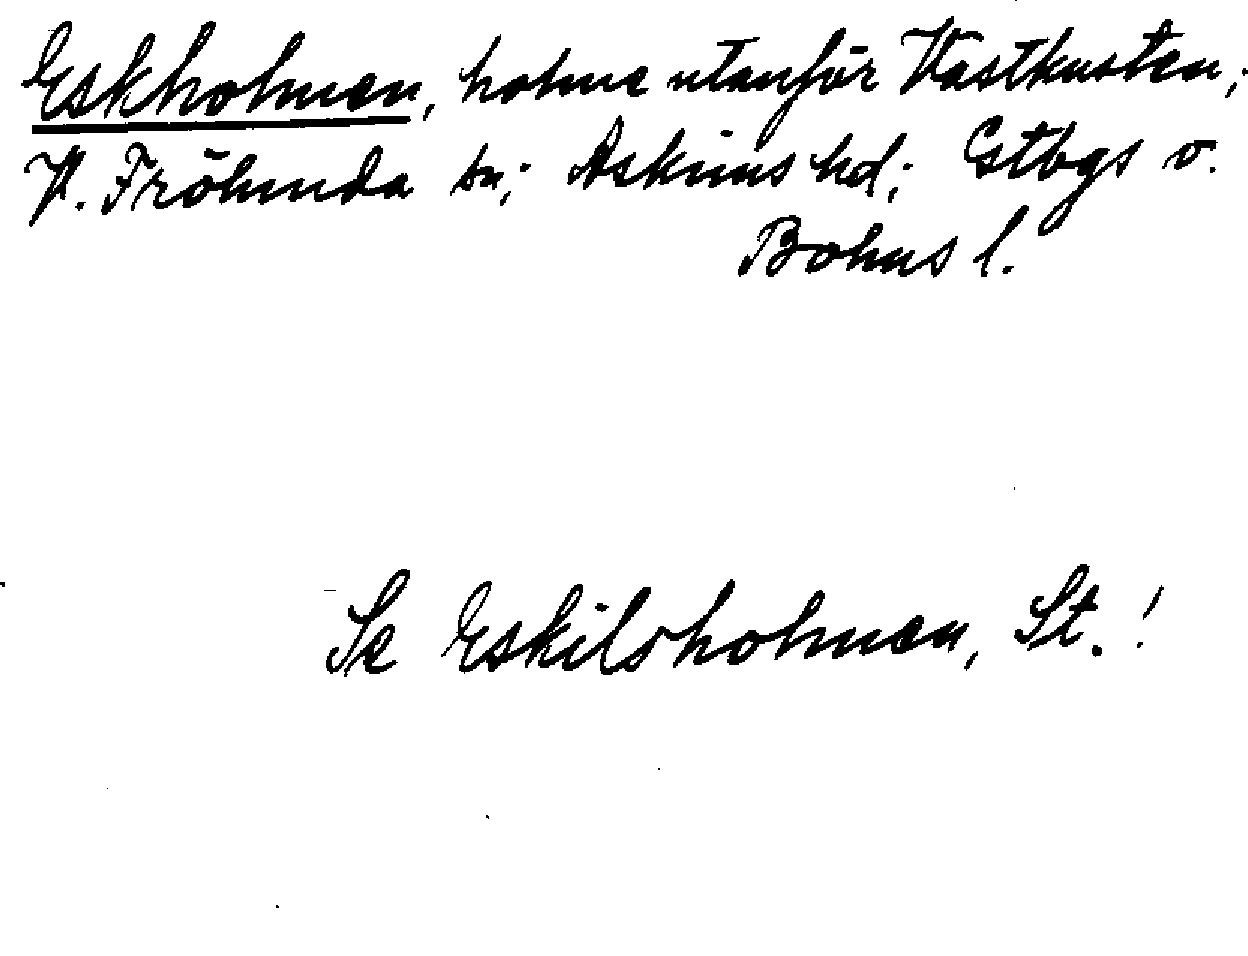 Eskholmen, holme utanför Västkusten;
V. Frölunda sn; Askims hd; Gtbgs o.
Bohus l.
Se Eskilsholmen, St.!